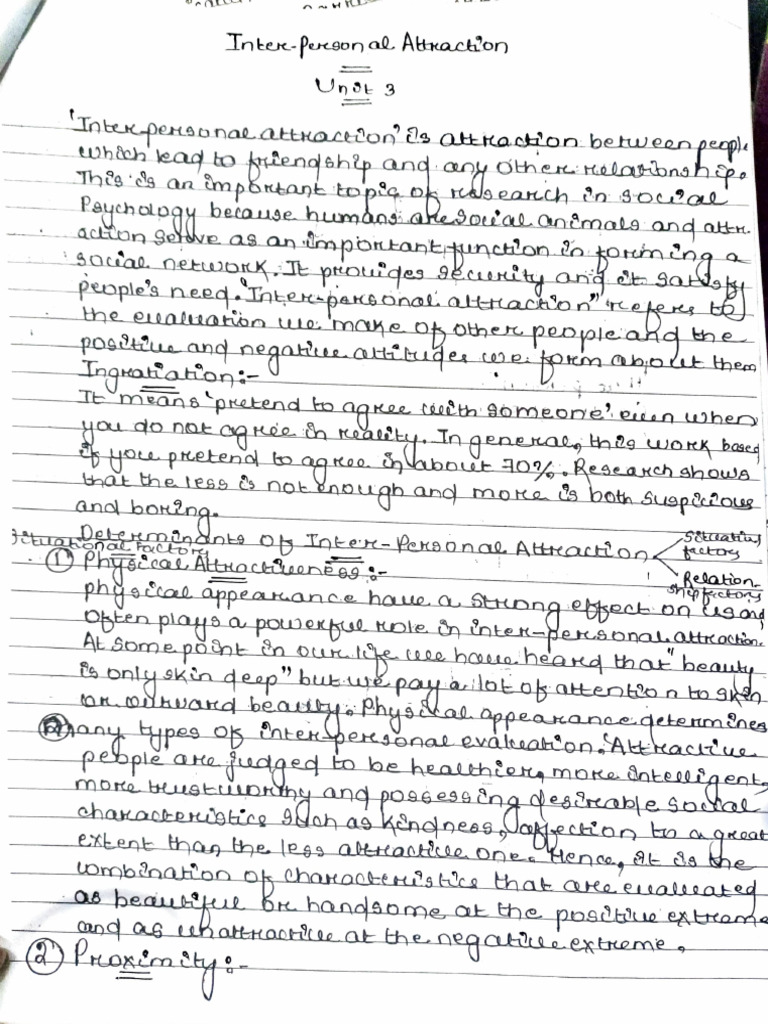 Inter-Personal Attraction
Unit 3
'Interpersonal attraction' is attraction between people
which lead to friendship and any other relationship.
This is an important topic of research in social
Psychology because humans are social animals and attr-
action serve as an important function in forming a
social network. It provides security and it satisfy
people's need. "Inter-personal attraction" refers to
the evaluation we make of other people and the
positive and negative attitudes we form about them
Ingratiation:-
It means 'pretend to agree with someone' even when
you do not agree in reality. In general, this work based
if you pretend to agree in about 70%. Research shows
that the less is not enough and more is both suspicious
and boring.
Determinants of Inter-Personal Attraction
Situation
factors
Relation-
ship factors
Situational Factors
① Physical Attractiveness:-
physical appearance have a strong effect on us and
often plays a powerful role in inter-personal attraction.
At some point in our life we have heard that "beauty
is only skin deep" but we pay a lot of attention to skin
or outward beauty. Physical appearance determines
many types of interpersonal evaluation. Attractive
people are judged to be healthier, more intelligent,
more trustworthy and possessing desireable social
characteristics such as kindness, affection to a great
extent than the less attractive one. Hence, it is the
combination of characteristics that are evaluated
as beautiful or handsome at the positive extreme
and as unattractive at the negative extreme.
② Proximity:-